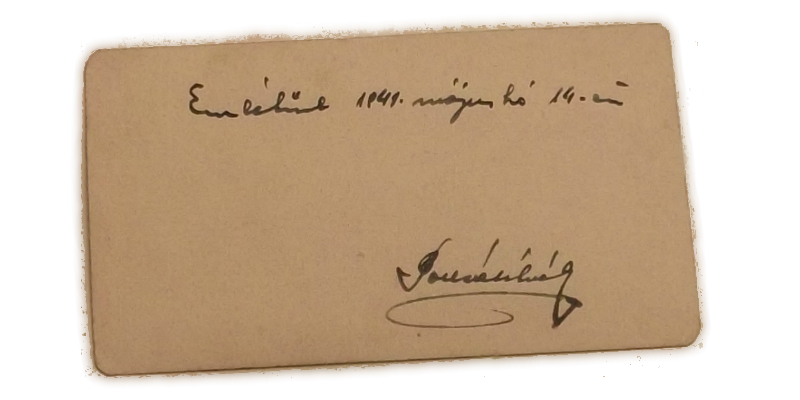 Emlékül 1941. május hó 14-én